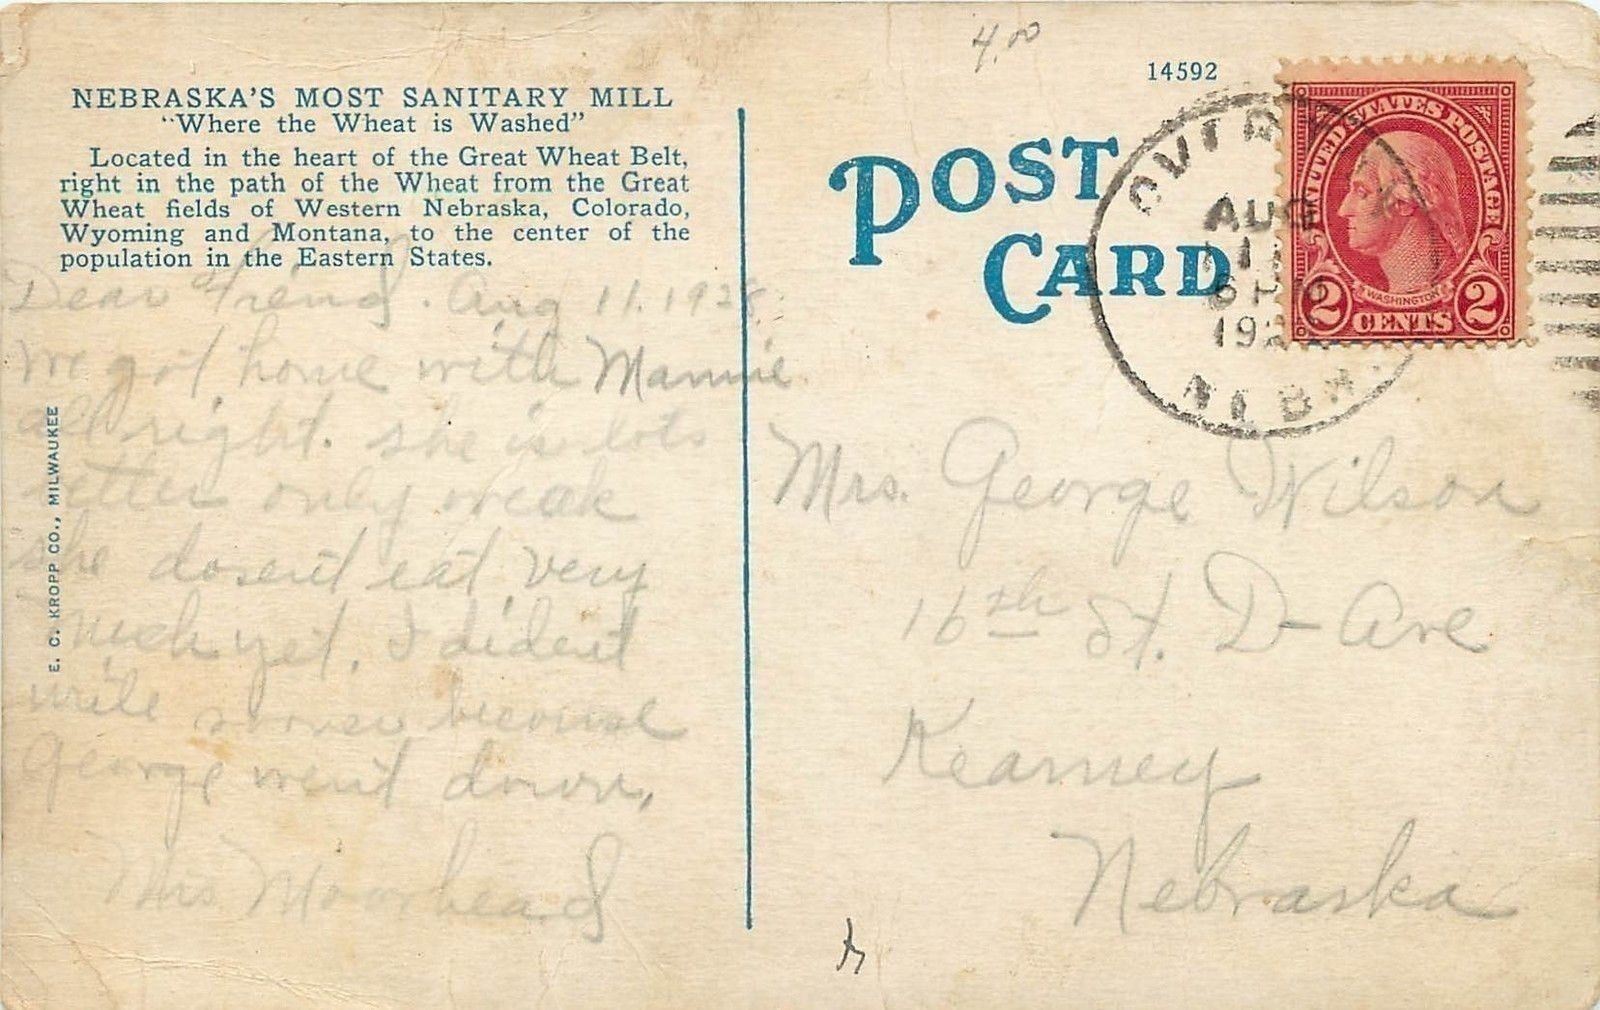 4.00
14592
NEBRASKA'S MOST SANITARY MILL
"Where the Wheat is Washed"
Located in the heart of the Great Wheat Belt,
right in the path of the Wheat from the Great
Wheat fields of Western Nebraska, Colorado,
Wyoming and Montana, to the center of the
population in the Eastern States.
Dear Friend. Aug 11. 1928
We got home with Mannie
all right. she is lots
better only weak
she dosent eat very
much yet. I dident
write sooner because
George went down.
Mrs Moorhead
E. C. KROPP CO., MILWAUKEE
POST
CARD
OVID
AUG
NEBR.
UNITED STATES POSTAGE
WASHINGTON
2 CENTS 2
Mrs. George Wilson
16th St. D- Ave
Kearney
Nebraska